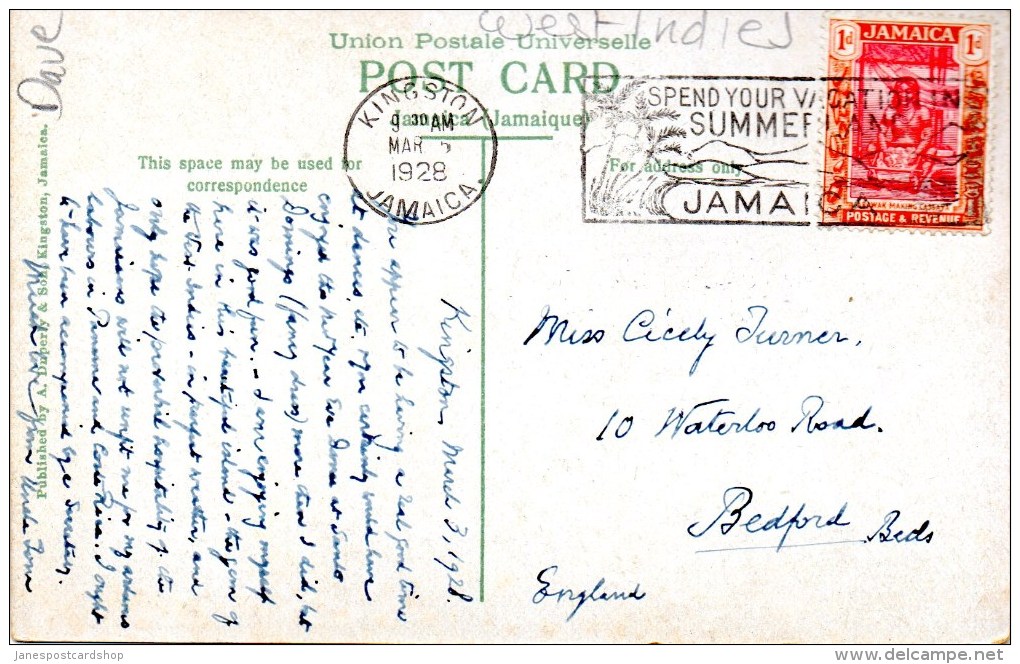 West Indies
Dave
Union Postale Universelle
POST CARD
Jamaica (Jamaique)
This space may be used for
correspondence
For address only
KINGSTON
9 30 AM
MAR 5
1928
JAMAICA
SPEND YOUR VACATION IN
SUMMER LAND
JAMAICA
JAMAICA
1d 1d
ARAWAK MAKING CASSAVA
POSTAGE & REVENUE
Published by A. Duperly & Son, Kingston, Jamaica.
Kingston, March 3, 1928.
You appear to be having a real good time
at dances, etc. You certainly would have
enjoyed the New Year Eve Dance at Santo
Domingo (fancy dress) more than I did, but
it was good fun. I am enjoying myself
here in this beautiful island - the gem of
the West Indies - in perfect weather, and
only hope the proverbial hospitality of the
Jamaicans will not unfit me for my arduous
labours in Panama and Costa Rica. I ought
to have been accompanied by a Secretary.
Your Uncle Tom
Miss Cicely Turner,
10 Waterloo Road.
Bedford Beds
England
janespostcardshop
www.delcampe.net